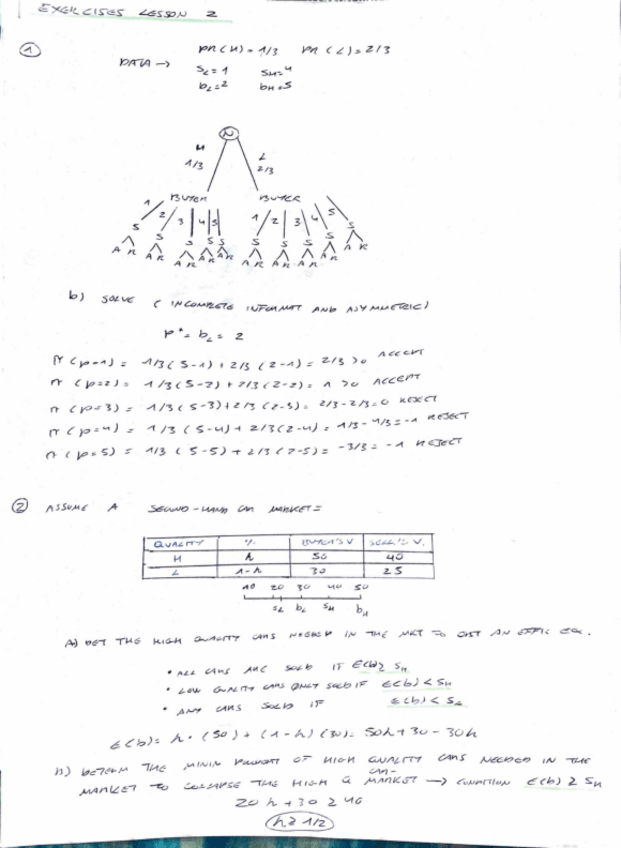 EXERCISES LESSON 2
1
DATA → PR(H) = 1/3 PR(L) = 2/3
SL = 1 SH = 4
bL = 2 bH = 5
N
H L
1/3 2/3
BUYER BUYER
1 2 3 4 5 1 2 3 4 5
S S S S S S S S S S
A R A R A R A R A R A R A R A R A R A R
b) SOLVE (INCOMPLETE INFORMAT AND ASYMMETRIC)
P* = bL = 2
π(p=1) = 1/3(5-1) + 2/3(2-1) = 2/3 >0 ACCEPT
π(p=2) = 1/3(5-2) + 2/3(2-2) = 1 >0 ACCEPT
π(p=3) = 1/3(5-3) + 2/3(2-3) = 2/3-2/3=0 REJECT
π(p=4) = 1/3(5-4) + 2/3(2-4) = 1/3-4/3=-1 REJECT
π(p=5) = 1/3(5-5) + 2/3(2-5) = -3/3=-1 REJECT
2 ASSUME A SECOND-HAND CAR MARKET =
QUALITY % BUYER'S V SELL'S V.
H h 50 40
L 1-h 30 25
10 20 30 40 50
SL bL SH bH
A) DET THE HIGH QUALITY CARS NEEDED IN THE MKT TO EXIST AN EFFIC EQU.
• ALL CARS ARE SOLD IF E(b) ≥ SH
• LOW QUALITY CARS ONLY SOLD IF E(b) < SH
• ANY CARS SOLD IF E(b) < SL
E(b) = h·(50) + (1-h)(30) = 50h + 30 - 30h
B) DETERM THE MINIM OF HIGH QUALITY CARS NEEDED IN THE
MARKET TO COLLAPSE THE HIGH Q CAR- MARKET → CONDITION E(b) ≥ SH
20h + 30 ≥ 40
h ≥ 1/2